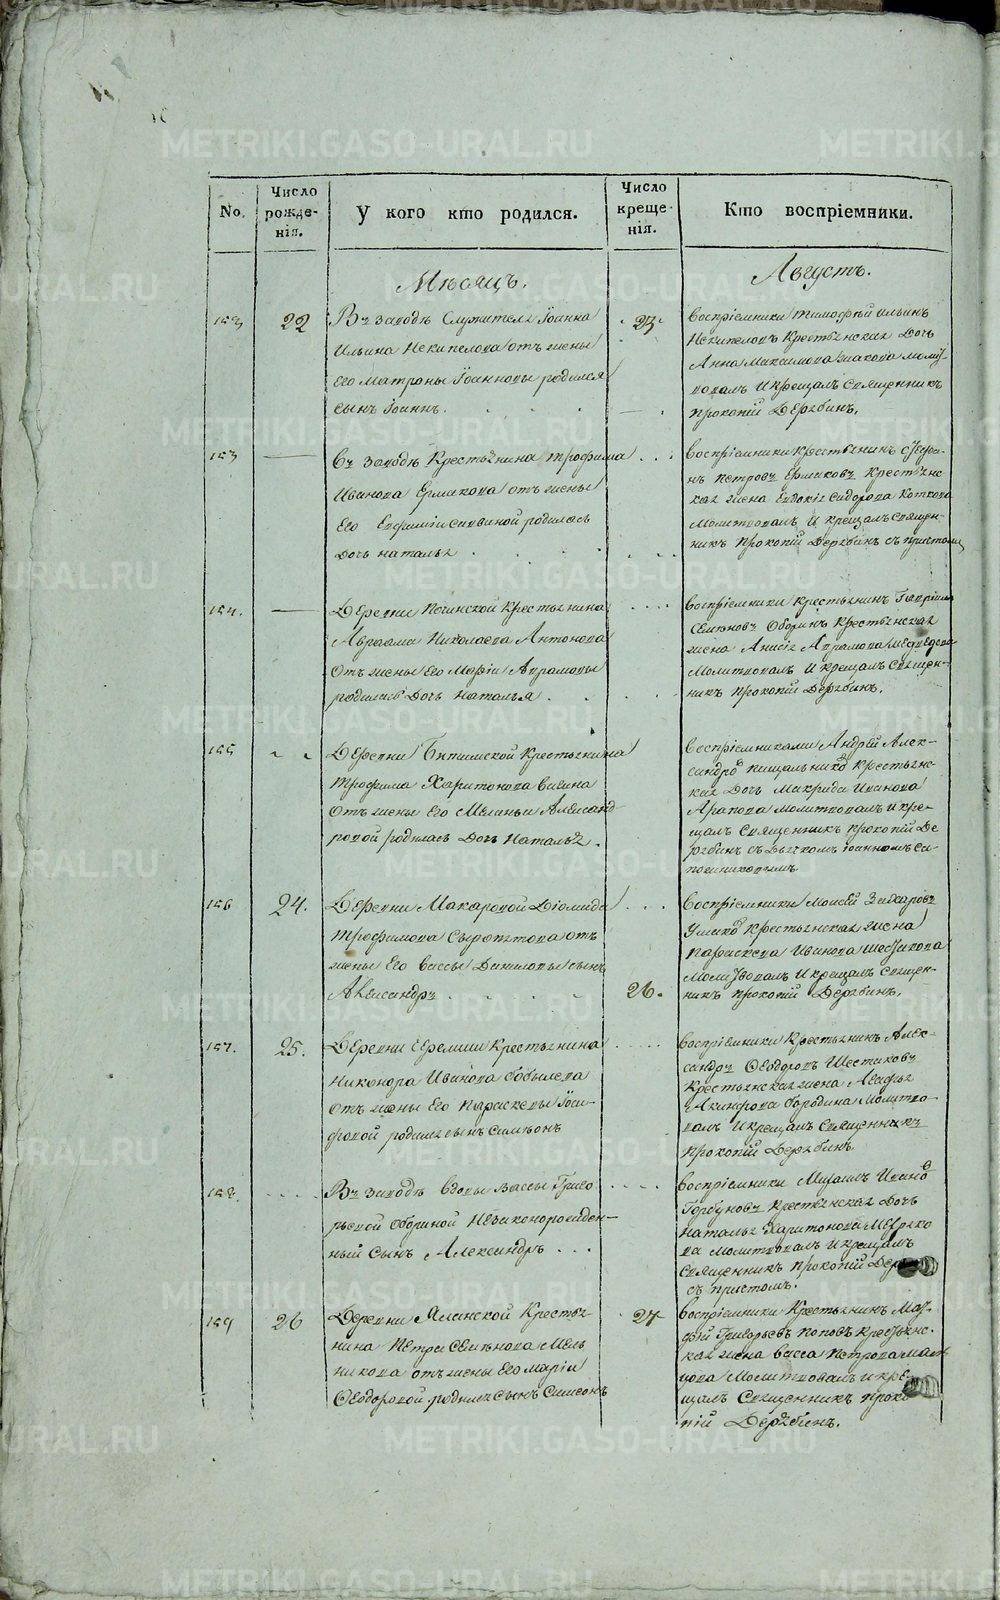 METRIKI.GASO-URAL.RU
No.
Число рожде-нія.
У кого кто родился.
Число креще-нія.
Кто воспріемники.
Мѣсяцъ.
Августъ.
22
Въ заводѣ Служителя Іоанна
Ильина Некипелова отъ жены
Его Матроны Іоанновы родился
сынъ Іоаннъ.
23.
воспріемники тимофѣй ильинъ
Некипеловъ Крестьянская Дочь
Анна Максимова
и Крещалъ Священникъ
прокопій Дерябинъ.
153
въ заводѣ Крестьянина трофима
Иванова Ермакова отъ жены
Его Евфиміи Саввиной родилась
Дочь наталья
воспріемники крестьянинъ
петровъ Ермаковъ Крестьянс-
кая жена Евдокія сидорова
Молитвовалъ и крещалъ священ-
никъ прокопій Дерябинъ
154.
Деревни Крестьянина
Авраама Николаева Антонова
Отъ жены Его Марѳіи Аврамовы
родилась Дочь Наталья.
воспріемники крестьянинъ Гавріилъ
Семѣновъ Оборинъ Крестьянская
жена Анисія Аврамова
Молитвовалъ и крещалъ священ-
никъ прокопій Дерябинъ.
155
Деревни Крестьянина
трофима Харитонова
отъ жены Его Меланьи Александ
ровой родилась Дочь Наталья.
воспріемниками Андрей Алек-
сандровъ пищальниковъ Крестьянс-
кая Дочь Макрида Иванова
Арапова Молитвовалъ и кре-
щалъ Священникъ прокопій Де
рябинъ съ Дьячкомъ іоанномъ Са-
пожниковымъ
156
24.
Деревни Макаровой Діомида
трофимова Сыропятова отъ
жены Его вассы Даниловы сынъ
Александръ
26.
воспріемники Моисей Захаровъ
Крестьянская жена
параскева Иванова Шестакова
Молитвовалъ и крещалъ священ-
никъ прокопій Дерябинъ.
157.
25.
Деревни Крестьянина
Никонора Иванова бобылева
отъ жены Его параскевы Іоси-
фовой родился сынъ Симеонъ
воспріемники Крестьянинъ Алек-
сандръ Ѳеодоровъ Шестаковъ
Крестьянская жена Агафья
Акинфова бородина Молитво-
валъ и Крещалъ Священникъ
прокопій Дерябинъ
158.
Въ заводѣ вдовы вассы Григо
рьевой Обориной Незаконорожден-
ный сынъ Александръ
воспріемники Михаилъ Ивановъ
Горбуновъ Крестьянская Дочь
наталья Харитонова
Молитвовалъ и крещалъ
Священникъ прокопій
съ причтомъ.
159
26
Деревни Крестья-
нина Петра Семѣнова Мель
никова отъ жены Его Маріи
Ѳеодоровой родился сынъ Симеонъ
27
воспріемники Крестьянинъ Мат-
фей Григорьевъ поповъ крестьянс-
кая жена васса петрова
Молитвовалъ и кре-
щалъ Священникъ проко
пій Дерябинъ.